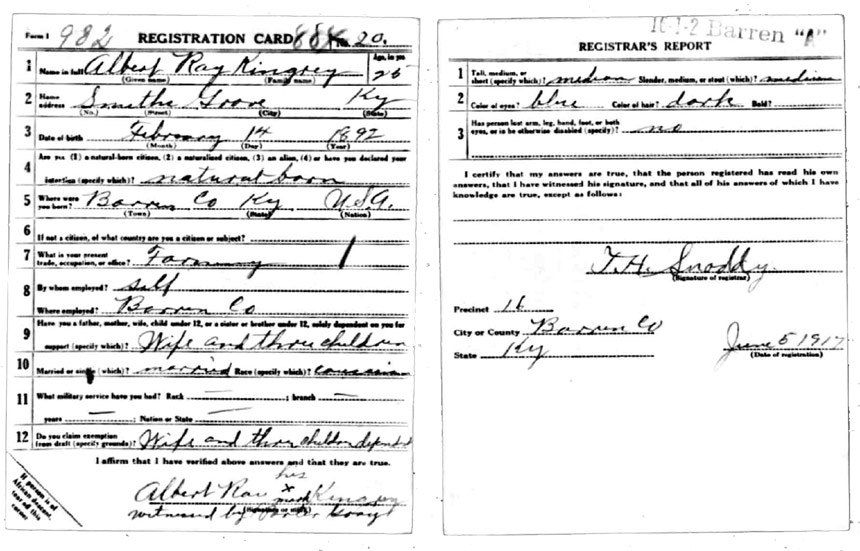 Form 1 982 REGISTRATION CARD No. 20.
1 Name in full Albert Ray Kingrey Age, in yrs. 25
(Given name) (Family name)
2 Home address Smiths Grove Ky
(No.) (Street) (City) (State)
3 Date of birth February 14 1892
(Month) (Day) (Year)
4 Are you (1) a natural-born citizen, (2) a naturalized citizen, (3) an alien, (4) or have you declared your
intention (specify which)? natural born
5 Where were you born? Barren Co Ky U.S.A.
(Town) (State) (Nation)
6 If not a citizen, of what country are you a citizen or subject?
7 What is your present trade, occupation, or office? Farming
8 By whom employed? self
Where employed? Barren Co
9 Have you a father, mother, wife, child under 12, or a sister or brother under 12, solely dependent on you for
support (specify which)? Wife and three children
10 Married or single (which)? married Race (specify which)? caucasian
11 What military service have you had? Rank — ; branch —
years — ; Nation or State —
12 Do you claim exemption from draft (specify grounds)? Wife and three children
I affirm that I have verified above answers and that they are true.
his
Albert Ray x Kingrey
mark
(Signature or mark)
witnessed by
If person is of
African descent,
tear off this
corner
16-1-2 Barren "A"
REGISTRAR'S REPORT
1 Tall, medium, or short (specify which)? medium Slender, medium, or stout (which)? medium
2 Color of eyes? blue Color of hair? dark Bald?
3 Has person lost arm, leg, hand, foot, or both
eyes, or is he otherwise disabled (specify)? no
I certify that my answers are true, that the person registered has read his own
answers, that I have witnessed his signature, and that all of his answers of which I have
knowledge are true, except as follows:
T.H. Snoddy
(Signature of registrar)
Precinct 16
City or County Barren Co
State Ky
June 5 1917
(Date of registration)